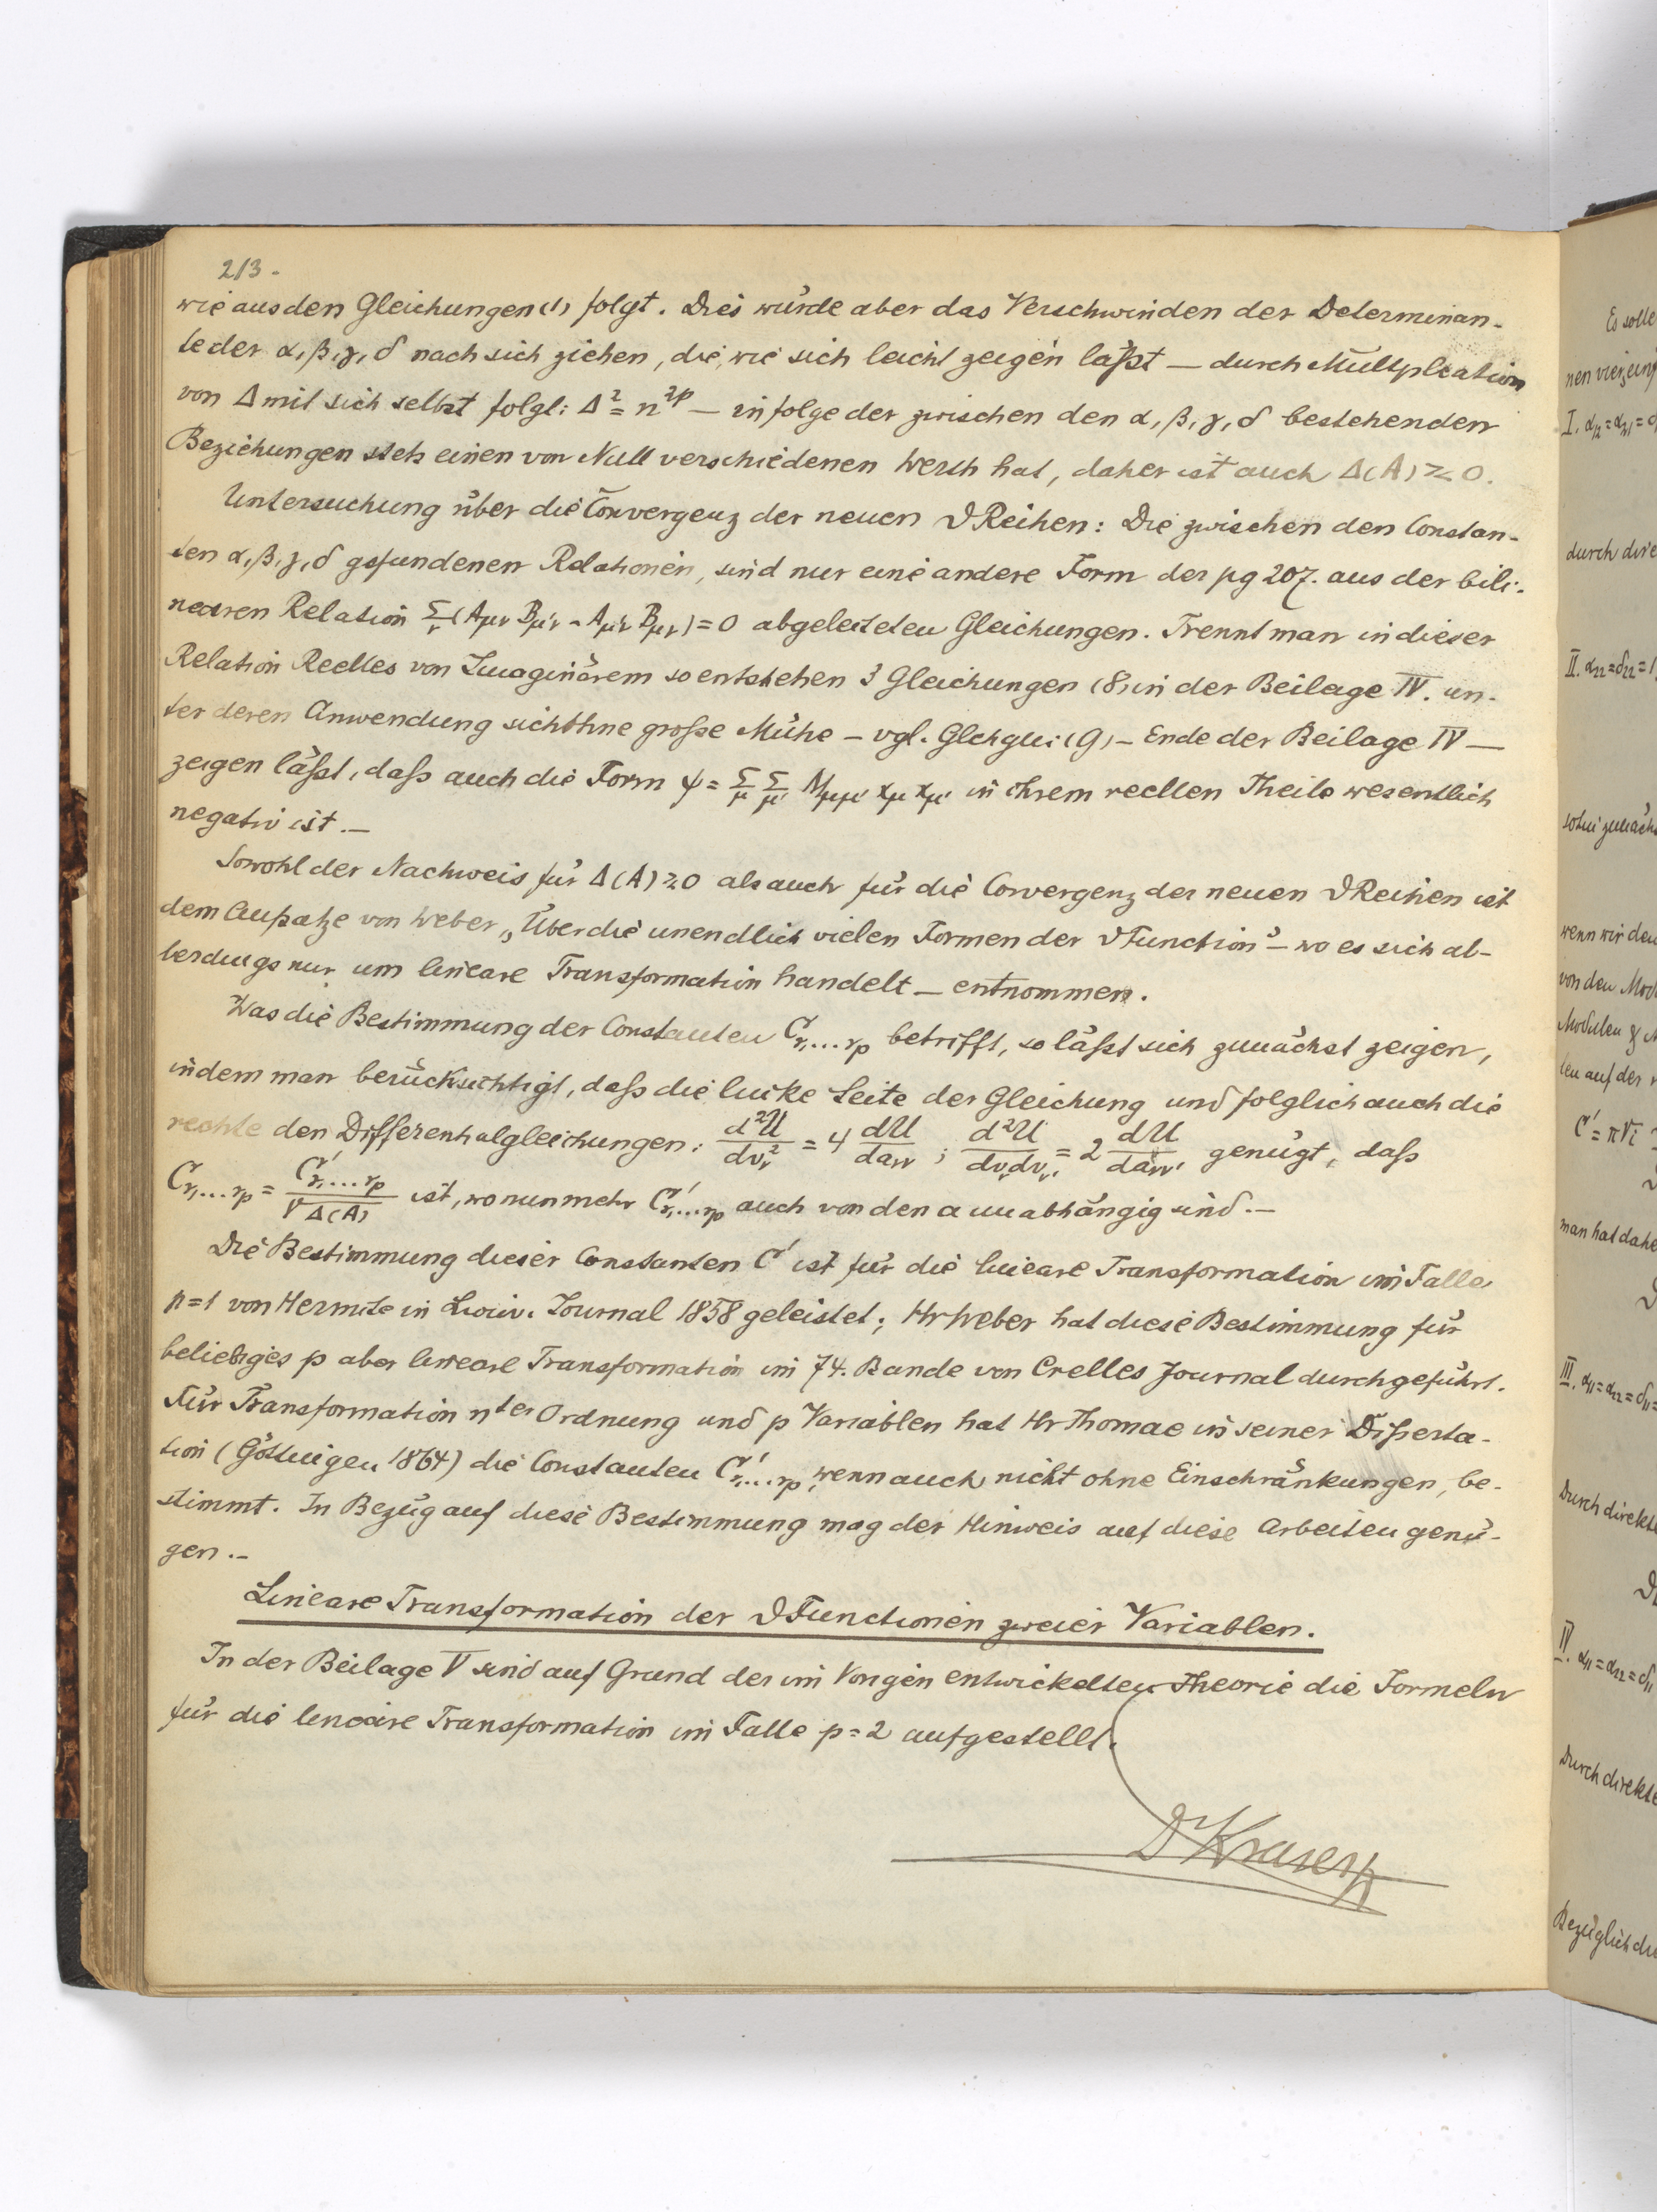 213.
wie aus den Gleichungen (1) folgt. Dies würde aber das Verschwinden der Determinan-
te der α, β, γ, δ nach sich ziehen, die, wie sich leicht zeigen läßt — durch Multiplication
von Δ mit sich selbst folgt: Δ² = n²ᵖ — in folge der zwischen den α, β, γ, δ bestehenden
Beziehungen stets einen von Null verschiedenen Werth hat, daher ist auch Δ(A) ≷ 0.
Untersuchung über die Convergenz der neuen ϑ Reihen: Die zwischen den Constan-
ten α, β, γ, δ gefundenen Relationen, sind nur eine andere Form der pg 207. aus der bili-
nearen Relation Σ_ν (A_μν B_μ'ν - A_μ'ν B_μν) = 0 abgeleiteten Gleichungen. Trennt man in dieser
Relation Reelles von Imaginärem so entstehen 3 Gleichungen (8) in der Beilage IV. un-
ter deren Anwendung sich ohne große Mühe — vgl. Glchgn: (9) — Ende der Beilage IV —
zeigen läßt, daß auch die Form ψ = Σ_μ Σ_μ' A_μμ' x_μ x_μ' in ihrem reellen Theile wesentlich
negativ ist. —
Sowohl der Nachweis für Δ(A) ≷ 0 als auch für die Convergenz der neuen ϑ Reihen ist
dem Aufsatze von Weber „Über die unendlich vielen Formen der ϑ Function“ — wo es sich al-
lerdings nur um lineare Transformation handelt — entnommen.
Was die Bestimmung der Constanten C_r₁...r_p betrifft, so läßt sich zunächst zeigen,
indem man berücksichtigt, daß die linke Seite der Gleichung und folglich auch die
rechte den Differentialgleichungen: d²U/dv_ν² = 4 dU/da_νν ; d²U/dv_ν dv_ν' = 2 dU/da_νν' genügt, daß
C_r₁...r_p = C'_r₁...r_p / √Δ(A) ist, wo nunmehr C'_r₁...r_p auch von den a unabhängig sind. —
Die Bestimmung dieser Constanten C' ist für die lineare Transformation im Falle
p=1 von Hermite in Liouv. Journal 1858 geleistet; Hr Weber hat diese Bestimmung für
beliebiges p aber lineare Transformation im 74. Bande von Crelles Journal durchgeführt.
Für Transformation nter Ordnung und p Variablen hat Hr Thomae in seiner Disserta-
tion (Göttingen 1864) die Constanten C'_r₁...r_p, wenn auch nicht ohne Einschränkungen, be-
stimmt. In Bezug auf diese Bestimmung mag der Hinweis auf diese Arbeiten genü-
gen. —
Lineare Transformation der ϑ Functionen zweier Variablen.
In der Beilage V sind auf Grund der im Vorigen entwickelten Theorie die Formeln
für die lineare Transformation im Falle p=2 aufgestellt.
Dr Krazer
Es solle
nen vier
I. α₁₂=α₂₁=0
durch dire
II. α₂₂=δ₂₂=1
wenn wir den
von den Mod
Modulen
ten auf der
C' = π√i
man hat dahe
III. α₁₁=α₂₂=δ₁₁=
Durch direkte
IV. α₁₁=α₂₂=δ₁₁
Durch direkte
Bezüglich du